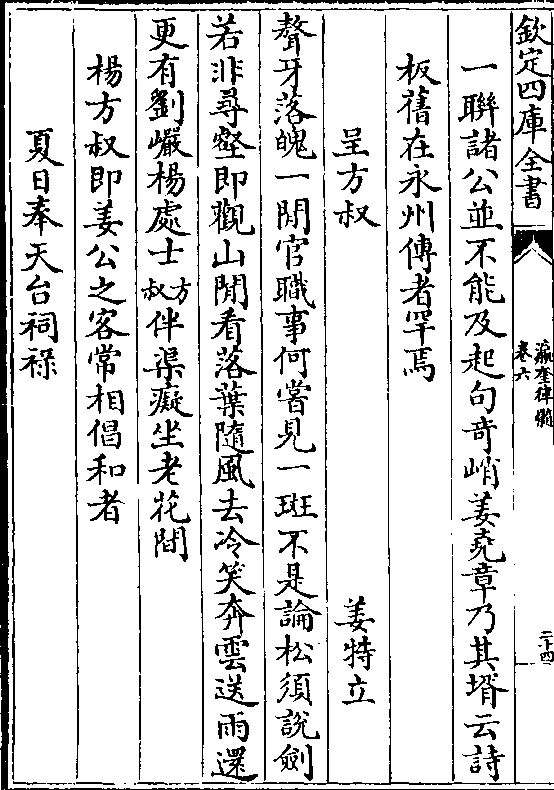 欽定四庫全書
瀛奎律髓
卷六
二十四
一聯諸公並不能及起句奇峭姜堯章乃其壻云詩
板舊在永州傳者罕焉
呈方叔 姜特立
聱牙落魄一閒官職事何嘗見一斑不是論松須說劍
若非尋壑即觀山閒看落葉隨風去冷笑奔雲送雨還
更有劉巗楊處士方叔伴渠癡坐老花間
楊方叔即姜公之客常相倡和者
夏日奉天台祠祿